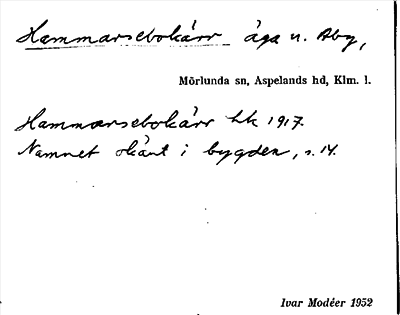 Hammarsebokärr äga u. Åby,
Mörlunda sn, Aspelands hd, Klm. l.
Hammarsebokärr hk 1917.
Namnet okänt i bygden, s. 14.
Ivar Modéer 1952